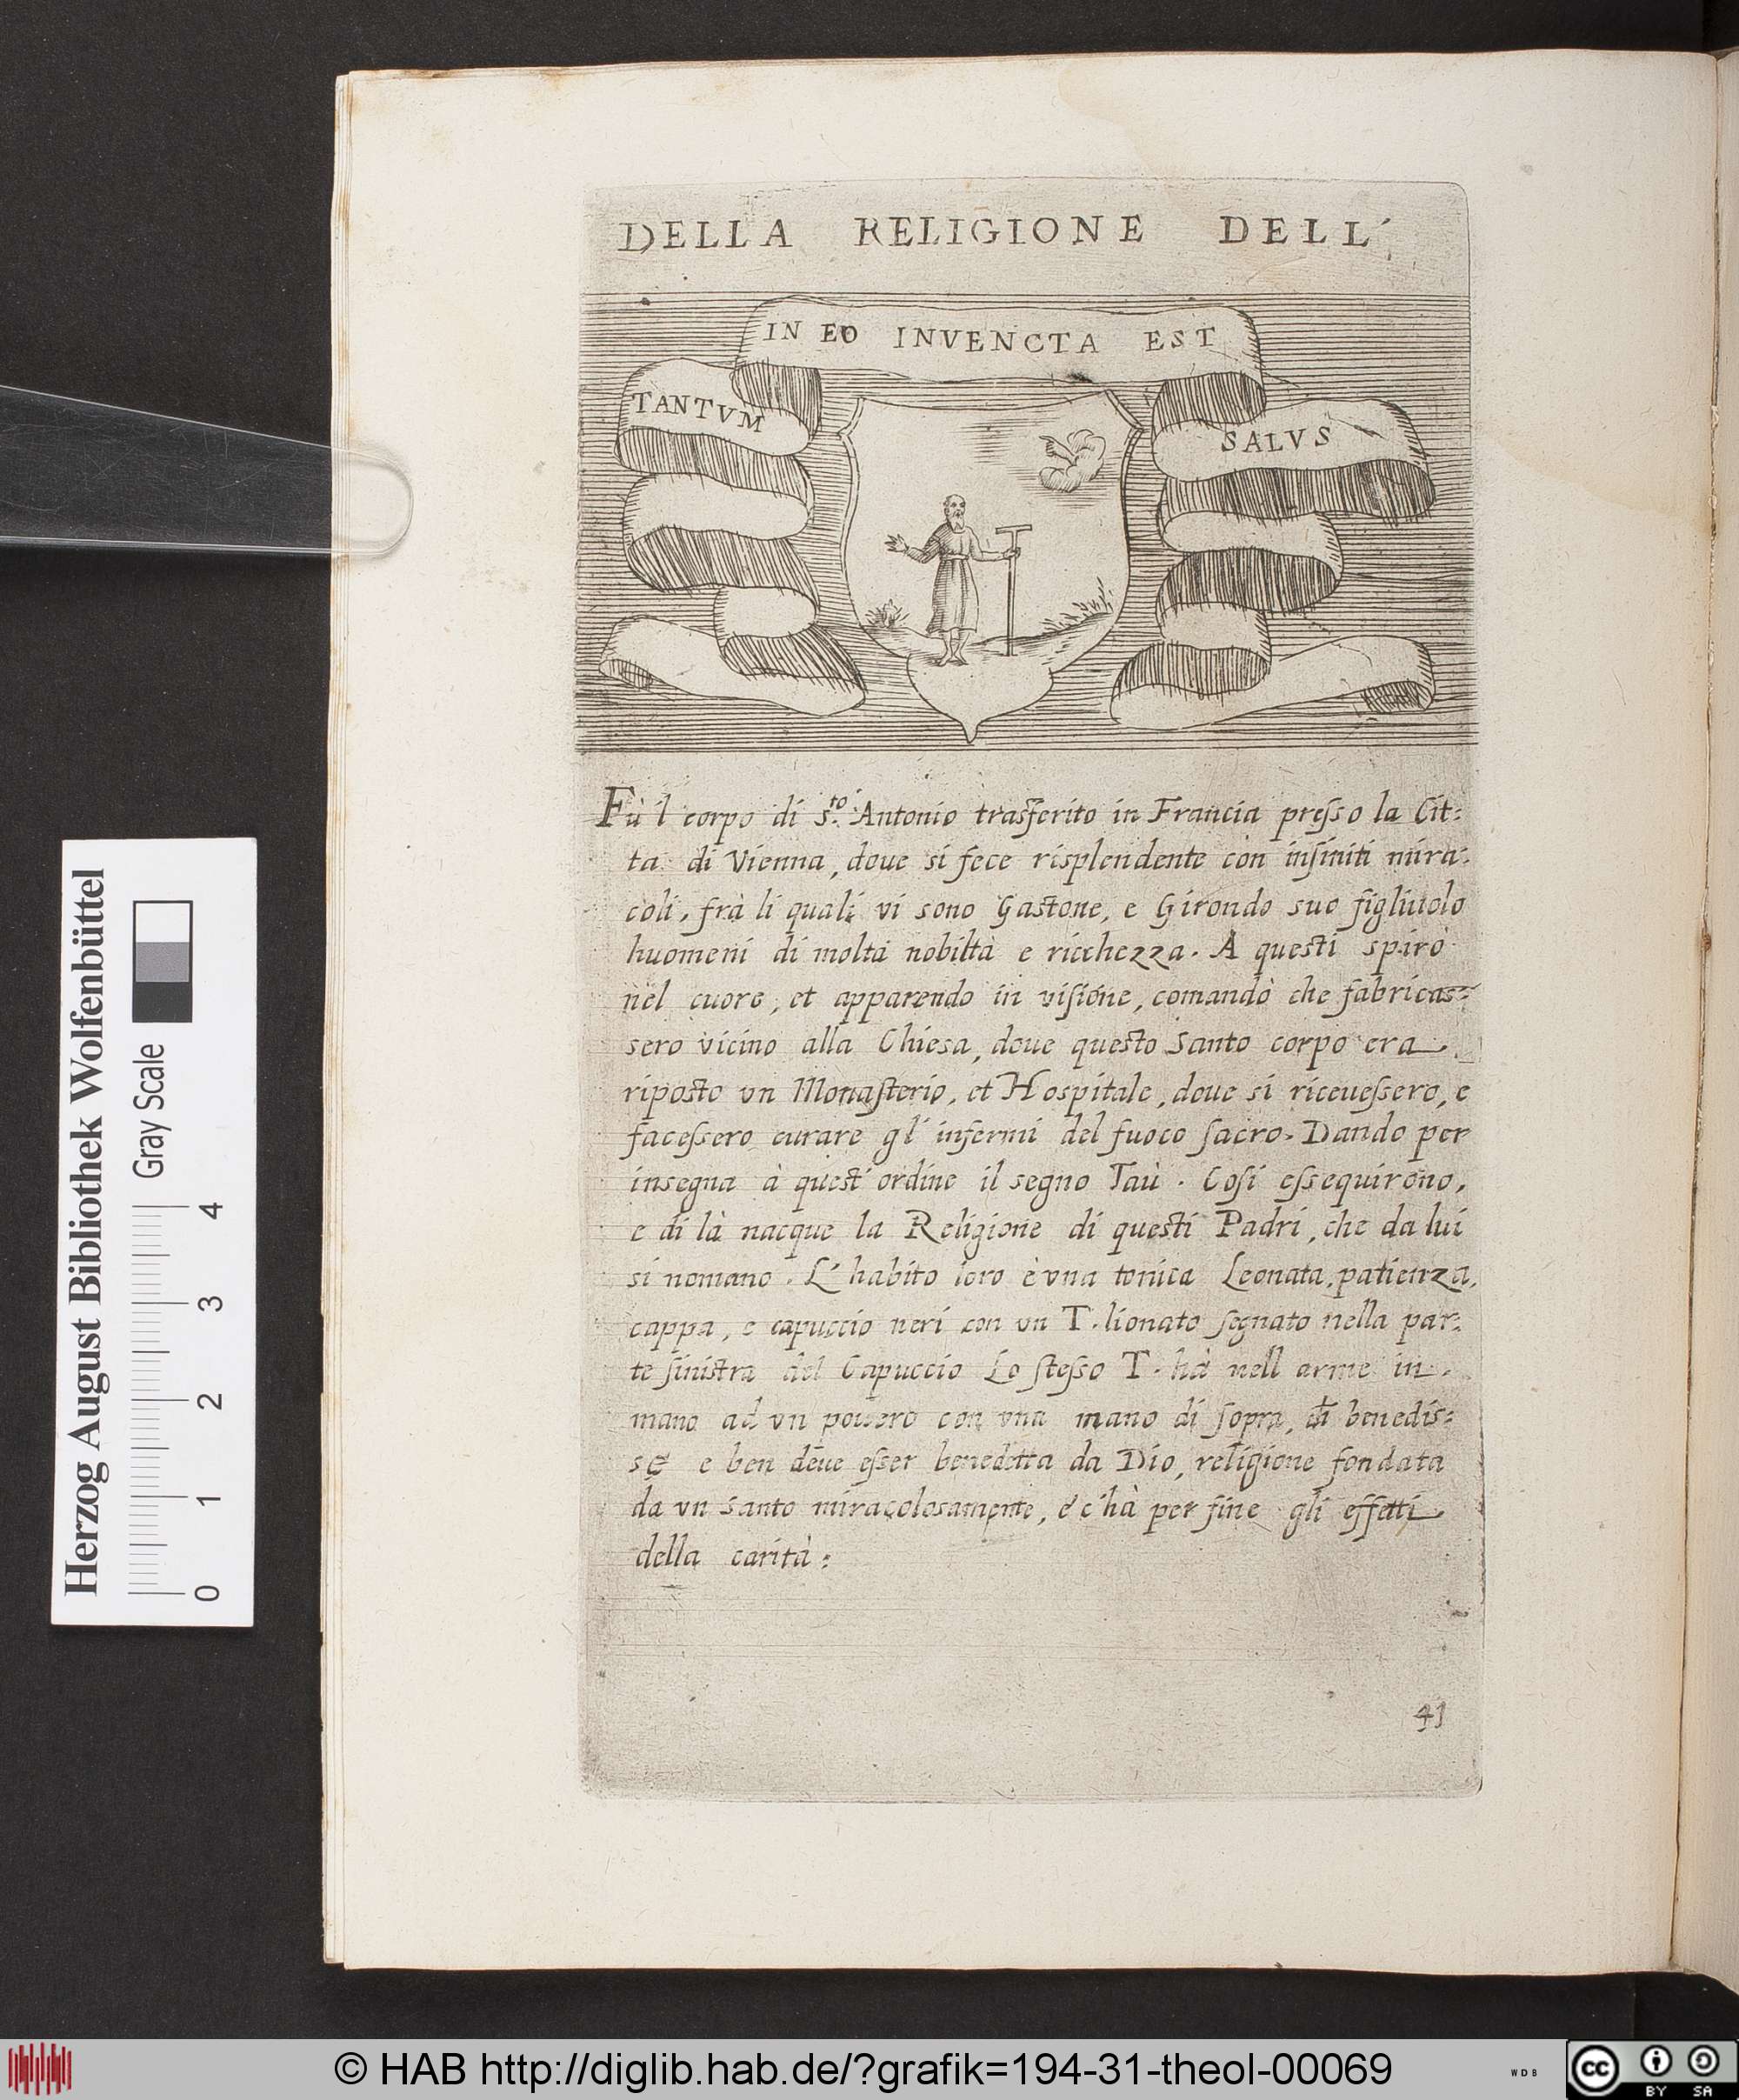 DELLA RELIGIONE DELL'
IN EO INVENCTA EST
TANTVM
SALVS
Fù l corpo di S.to Antonio trasferito in Francia presso la Cit:
ta di Vienna, doue si fece risplendente con infiniti mira:
coli, frà li quali vi sono Gastone, e Girondo suo figliuolo
huomeni di molta nobiltà e ricchezza. A questi spirò
nel cuore, et apparendo in visione, comandò che fabricas:
sero vicino alla Chiesa, doue questo Santo corpo era
riposto vn Monasterio, et Hospitale, doue si riceuessero, e
facessero curare gl' infermi del fuoco sacro. Dando per
insegna à quest' ordine il segno Taù. Cosi essequirono,
e di là nacque la Religione di questi Padri, che da lui
si nomano. L' habito loro è vna tonica Leonata, patienza,
cappa, e capuccio neri con vn T. lionato segnato nella par:
te sinistra del Capuccio Lo stesso T. hà nell arme in
mano ad vn pouero con vna mano di sopra, benedis:
se e ben deue esser benedetta da Dio, religione fondata
da vn Santo miracolosamente, e c'hà per fine gli effetti
della carità:
41
Herzog August Bibliothek Wolfenbüttel
Gray Scale
0 1 2 3 4
© HAB http://diglib.hab.de/?grafik=194-31-theol-00069
WDB
cc BY SA